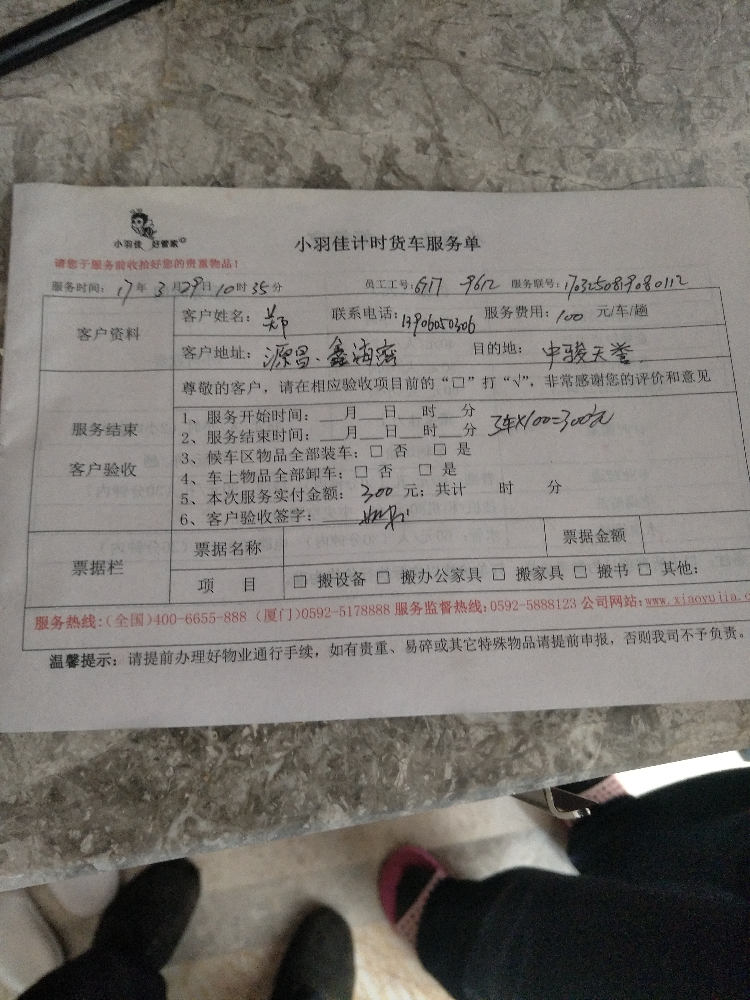 小羽佳 好管家
小羽佳计时货车服务单
请您于服务前收拾好您的贵重物品!
服务时间: 17年 3月29日10时35分 员工工号: 6917 9612 服务联号:
客户资料
客户姓名: 郑 联系电话: 13906050306 服务费用: 100 元/车/趟
客户地址: 源昌·鑫海湾 目的地: 中骏天誉
服务结束
客户验收
尊敬的客户,请在相应验收项目前的“□”打“√”,非常感谢您的评价和意见
1、服务开始时间: __月__日__时__分
2、服务结束时间: __月__日__时__分 3车X100=300元
3、候车区物品全部装车: □ 否 □ 是
4、车上物品全部卸车: □ 否 □ 是
5、本次服务实付金额: 300 元; 共计 时 分
6、客户验收签字:
票据栏
票据名称 票据金额
项 目 □ 搬设备 □ 搬办公家具 □ 搬家具 □ 搬书 □ 其他:
服务热线:(全国)400-6655-888 (厦门)0592-5178888 服务监督热线:0592-5888123 公司网站:www.xiaoyujia.c
温馨提示: 请提前办理好物业通行手续,如有贵重、易碎或其它特殊物品请提前申报,否则我司不予负责。